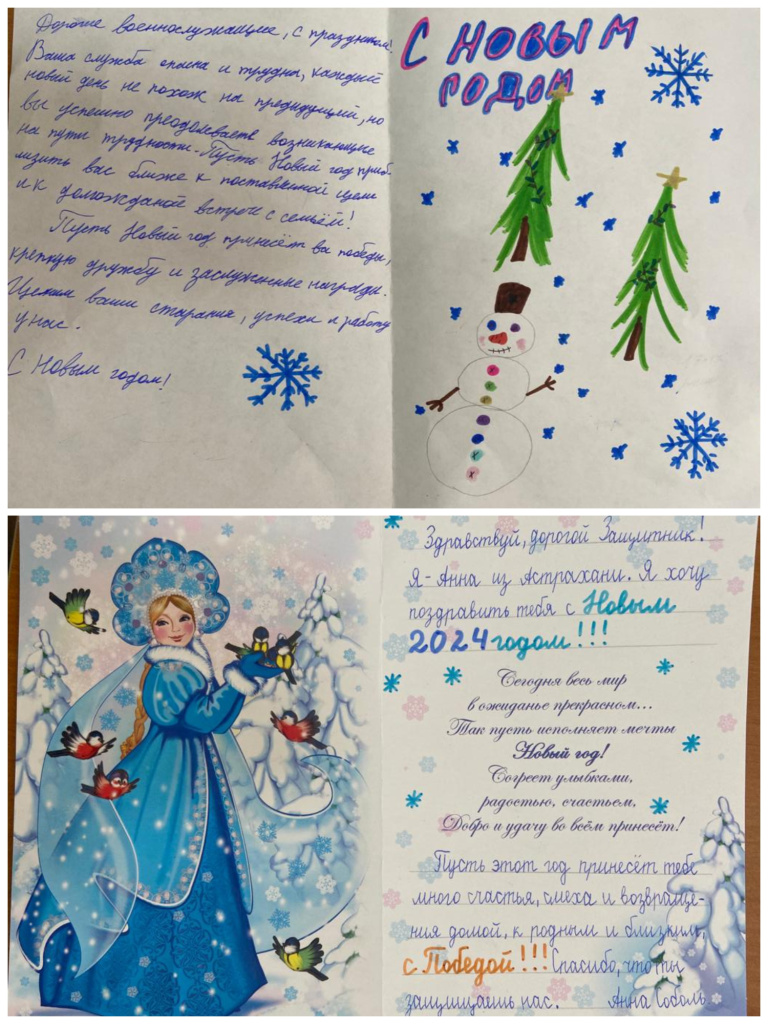 Дорогие военнослужащие, с праздником!
Ваша служба опасна и трудна, каждый
новый день не похож на предидущий, но
вы успешно преодолеваете возникающие
на пути трудности. Пусть Новый год приб-
лизить вас ближе к поставленной цели
и к долгожданой встречи с семьёй!
Пусть Новый год принесёт ва победы,
крепкую дружбу и заслуженые награды.
Ценим ваши старания, успехи и работу
у нас.
С Новым годом!
С НОВЫМ
ГОДОМ
Здравствуй, дорогой Защитник!
Я - Анна из Астрахани. Я хочу
поздравить тебя с Новым
2024 годом!!!
Сегодня весь мир
в ожиданье прекрасном...
Так пусть исполняет мечты
Новый год!
Согреет улыбками,
радостью, счастьем,
Добро и удачу во всём принесёт!
Пусть этот год принесёт тебе
много счастья, смеха и возвраще-
ния домой, к родным и близким,
с Победой!!! Спасибо, что ты
защищаешь нас. Анна Соболь